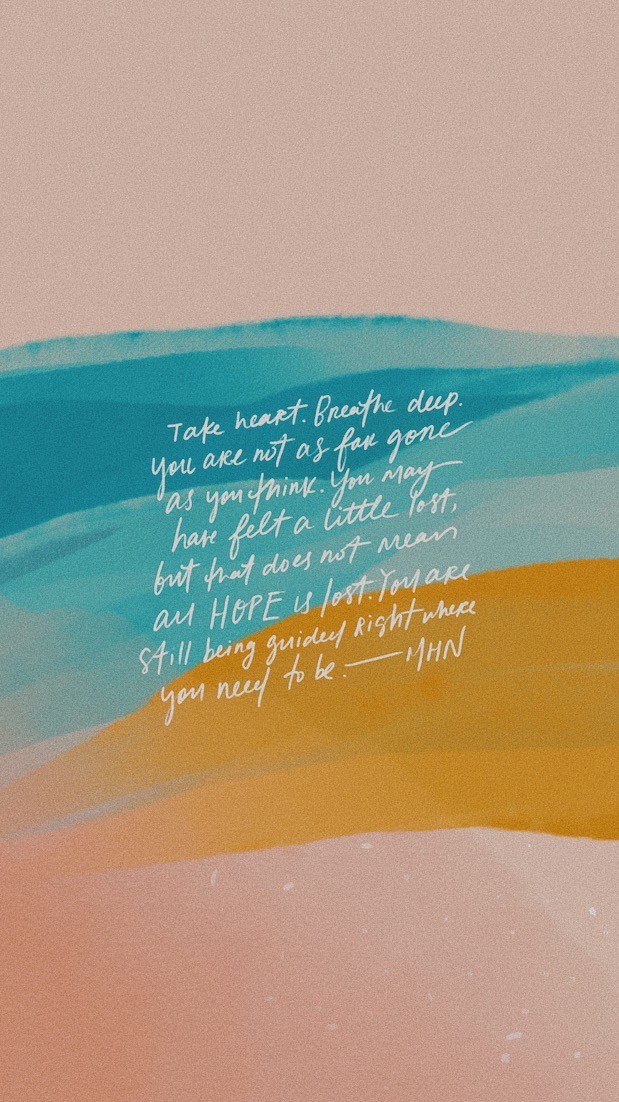 Take heart. Breathe deep.
You are not as far gone
as you think. You may
have felt a little lost,
but that does not mean
all HOPE is lost. You are
still being guided right where
you need to be. — MHN